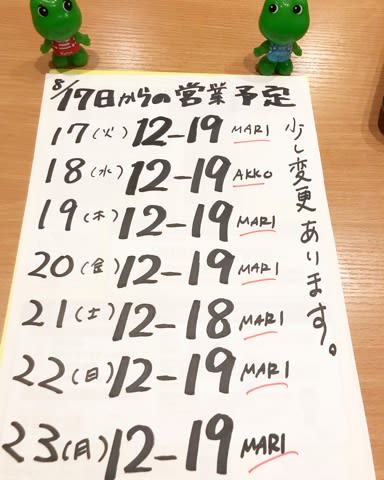 8/17日からの営業予定
17(火) 12-19 MARI
18(水) 12-19 AKKO
19(木) 12-19 MARI
20(金) 12-19 MARI
21(土) 12-18 MARI
22(日) 12-19 MARI
23(月) 12-19 MARI
少し変更あります。